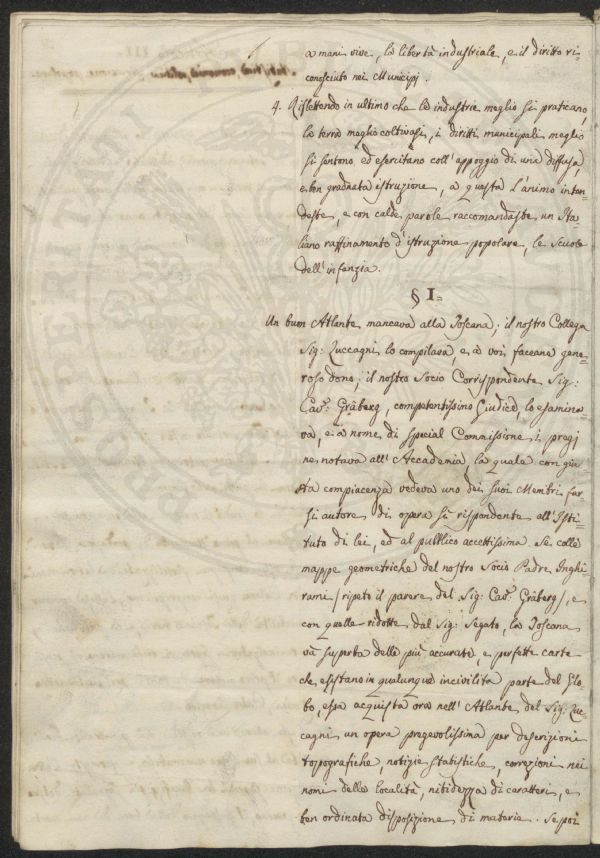 a mani vive, la libertà industriale, e il diritto ri-
conosciuto nei Municipj.
4. Riflettendo in ultimo che le industrie meglio si praticano,
le terre meglio coltivasi, i diritti municipali meglio
si sentono ed esercitano coll'appoggio di una diffusa,
e ben graduata istruzione, a questa l'animo inten-
deste, e con calde parole raccomandaste un Ita-
liano raffinamento d'istruzione popolare, le Scuole
dell'infanzia.
§ I=
Un buon Atlante mancava alla Toscana; il nostro Collega
Sig: Zuccagni lo compilava, e a voi faceane gene-
roso dono; il nostro Socio Corrispondente Sig:
Cav: Gräberg, competentissimo Giudice lo esamina-
va, e a nome di special Commissione i pregi
ne notava all'Accademia, la quale con giu-
sta compiacenza vedeva uno dei suoi Membri far-
si autore di opera sì rispondente all'Isti-
tuto di lei, ed al pubblico accettissima. Se colle
mappe geometriche del nostro Socio Padre Inghi-
rami (ripeto il parere del Sig: Cav: Gräberg), e
con quelle ridotte dal Sig: Segato, la Toscana
và superba delle più accurate, e perfette carte
che esistano in qualunque incivilita parte del Glo-
bo, essa acquista ora nell'Atlante del Sig: Zuc-
cagni un opera pregevolissima per descrizioni
topografiche, notizie statistiche, correzioni nei
nomi delle località, nitidezza di caratteri, e
ben ordinata disposizione di materie. Se poi